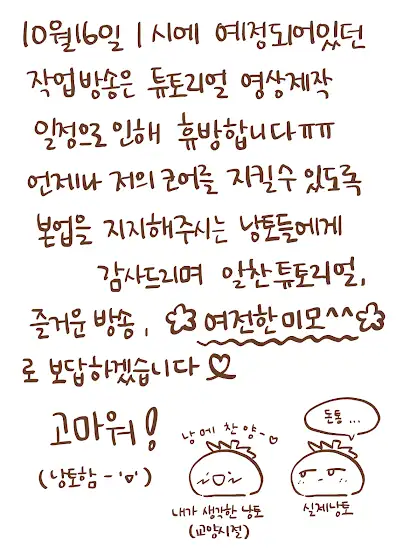 10월16일 1시에 예정되어있던
작업방송은 튜토리얼 영상제작
일정으로 인해 휴방합니다ㅠㅠ
언제나 저의 코어를 지킬수 있도록
본업을 지지해주시는 낭토들에게
감사드리며 알찬튜토리얼,
즐거운 방송, 여전한미모^^
로 보답하겠습니다♡
고마워!
(낭토함-'ㅁ')
낭에 찬양-♡
내가 생각한 낭토
(교양시절)
돈통...
실제낭토